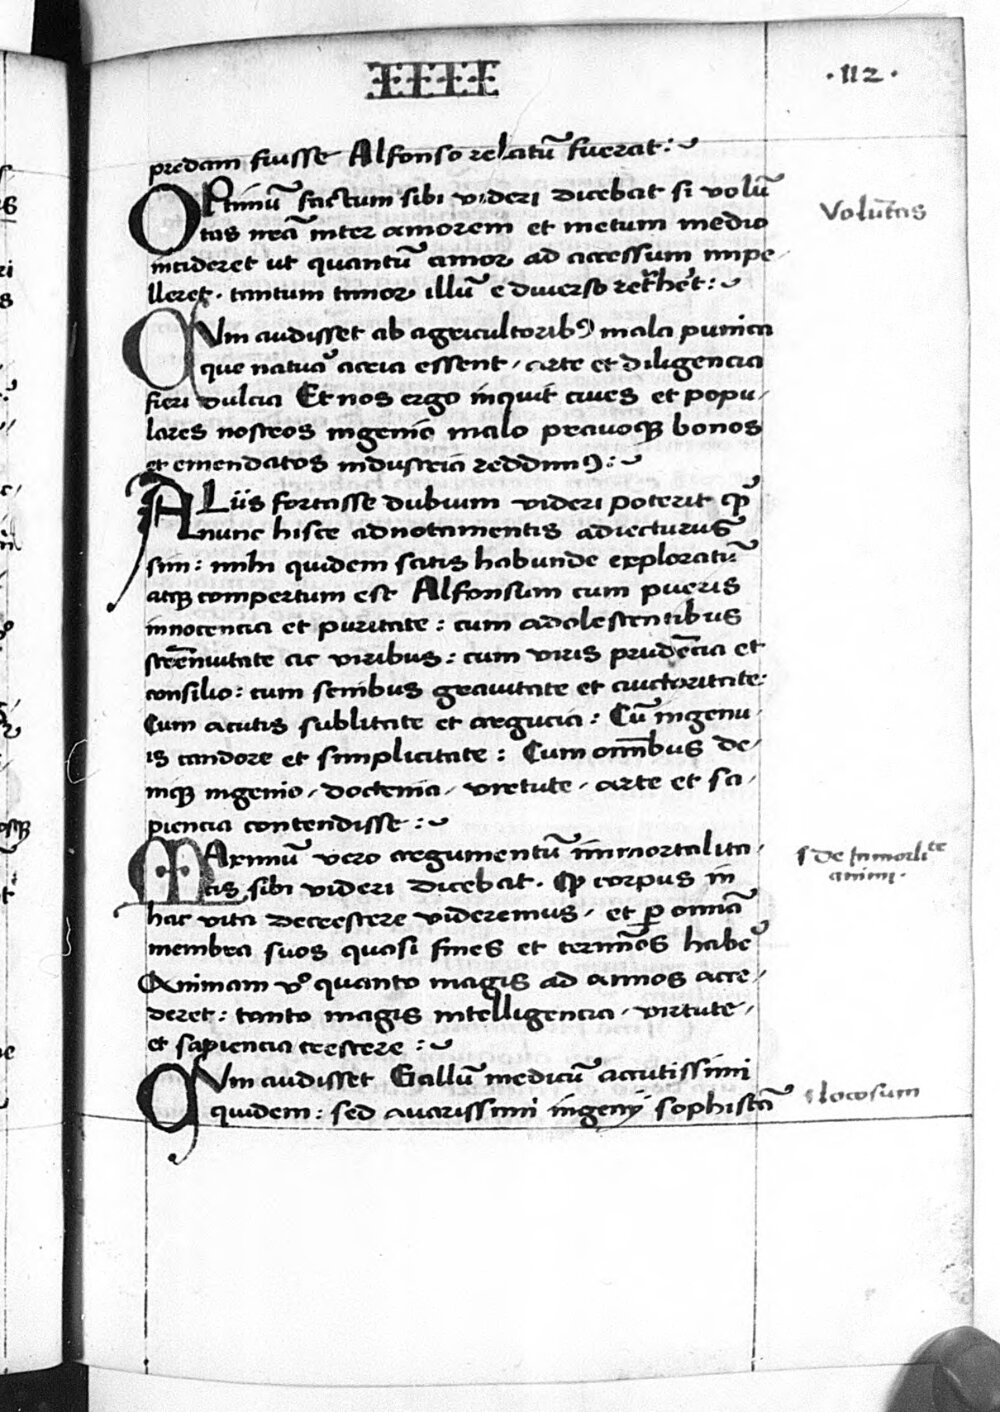 IIII
·112·
predam fuisse Alfonso relatū fuerat:
OPtimū factum sibi videri dicebat si volū
Volūtas
tas meā inter amorem et metum medio
incideret ut quantū amor ad accessum impe
lleret · tantum timor illū e diverso ret^rhēt:
CUm audisset ab agricultorib⁹ mala punica
que natuā acria essent / arte et diligencia
fieri dulcia Et nos ergo inquit cives et popu/
lares nostros ingenio malo pravoqꝫ bonos
et emendatos industria reddim⁹:
ALiis fortasse dubium videri poterit qꝫ
nunc hisce adnotamentis adiecturus
sim: mihi quidem satis habunde exploratū
atqꝫ compertum est Alfonsum cum pueris
innocencia et puritate: cum adolescentibus
strēnuitate ac viribus: cum viris prudēcia et
consilio: cum senibus gravitate et auctoritate:
Cum acutis sublitate et argucia: Cū ingenu/
is candore et simplicitate: Cum omībus de/
niqꝫ ingenio / doctrina / virtute / arte et sa/
piencia contendisse:
MAximū vero argumentū immortalita/
s de Inmorli^te
tis sibi videri dicebat · qꝫ corpus in
animi ·
hac vita decrescere videremus / et ꝑ omnia
membra suos quasi fines et termīos habeē
Animam v° quanto magis ad annos acce/
deret: tanto magis intelligencia / virtute /
et sapiencia crescere:
CUm audisset Gallū medicū acutissimi
quidem: sed avarissimi ingenij sophistā
s Iocosum